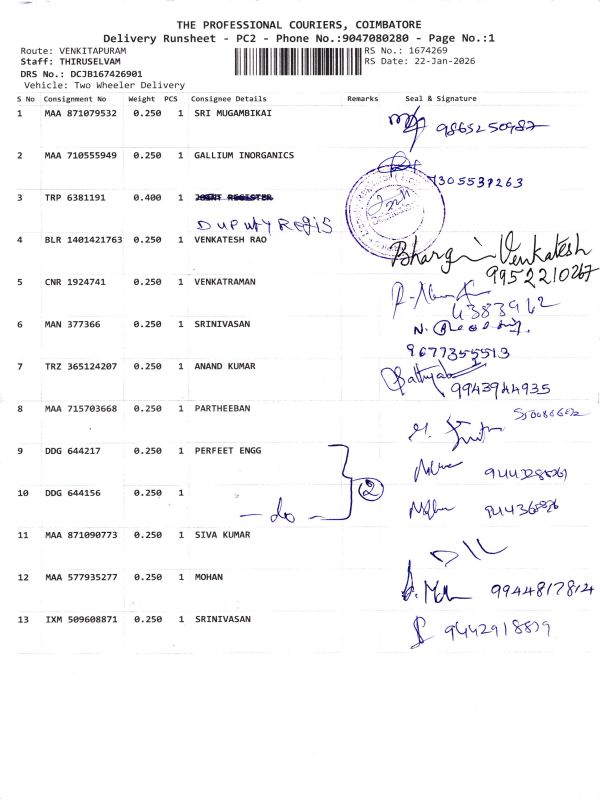 THE PROFESSIONAL COURIERS, COIMBATORE
Delivery Runsheet - PC2 - Phone No.:9047080280 - Page No.:1
Route: VENKITAPURAM RS No.: 1674269
Staff: THIRUSELVAM RS Date: 22-Jan-2026
DRS No.: DCJB167426901
Vehicle: Two Wheeler Delivery
S No Consignment No Weight PCS Consignee Details Remarks Seal & Signature
1 MAA 871079532 0.250 1 SRI MUGAMBIKAI 9865250987
2 MAA 710555949 0.250 1 GALLIUM INORGANICS
7305539263
3 TRP 6381191 0.400 1 JOINT REGISTER
DUPUTY Regis
4 BLR 1401421763 0.250 1 VENKATESH RAO Venkatesh
9952210267
5 CNR 1924741 0.250 1 VENKATRAMAN
6383962
6 MAN 377366 0.250 1 SRINIVASAN N.
9677355513
7 TRZ 365124207 0.250 1 ANAND KUMAR
9943944935
8 MAA 715703668 0.250 1 PARTHEEBAN
9 DDG 644217 0.250 1 PERFEET ENGG
2
10 DDG 644156 0.250 1
- do -
11 MAA 871090773 0.250 1 SIVA KUMAR
12 MAA 577935277 0.250 1 MOHAN
9944817814
13 IXM 509608871 0.250 1 SRINIVASAN 9442918859